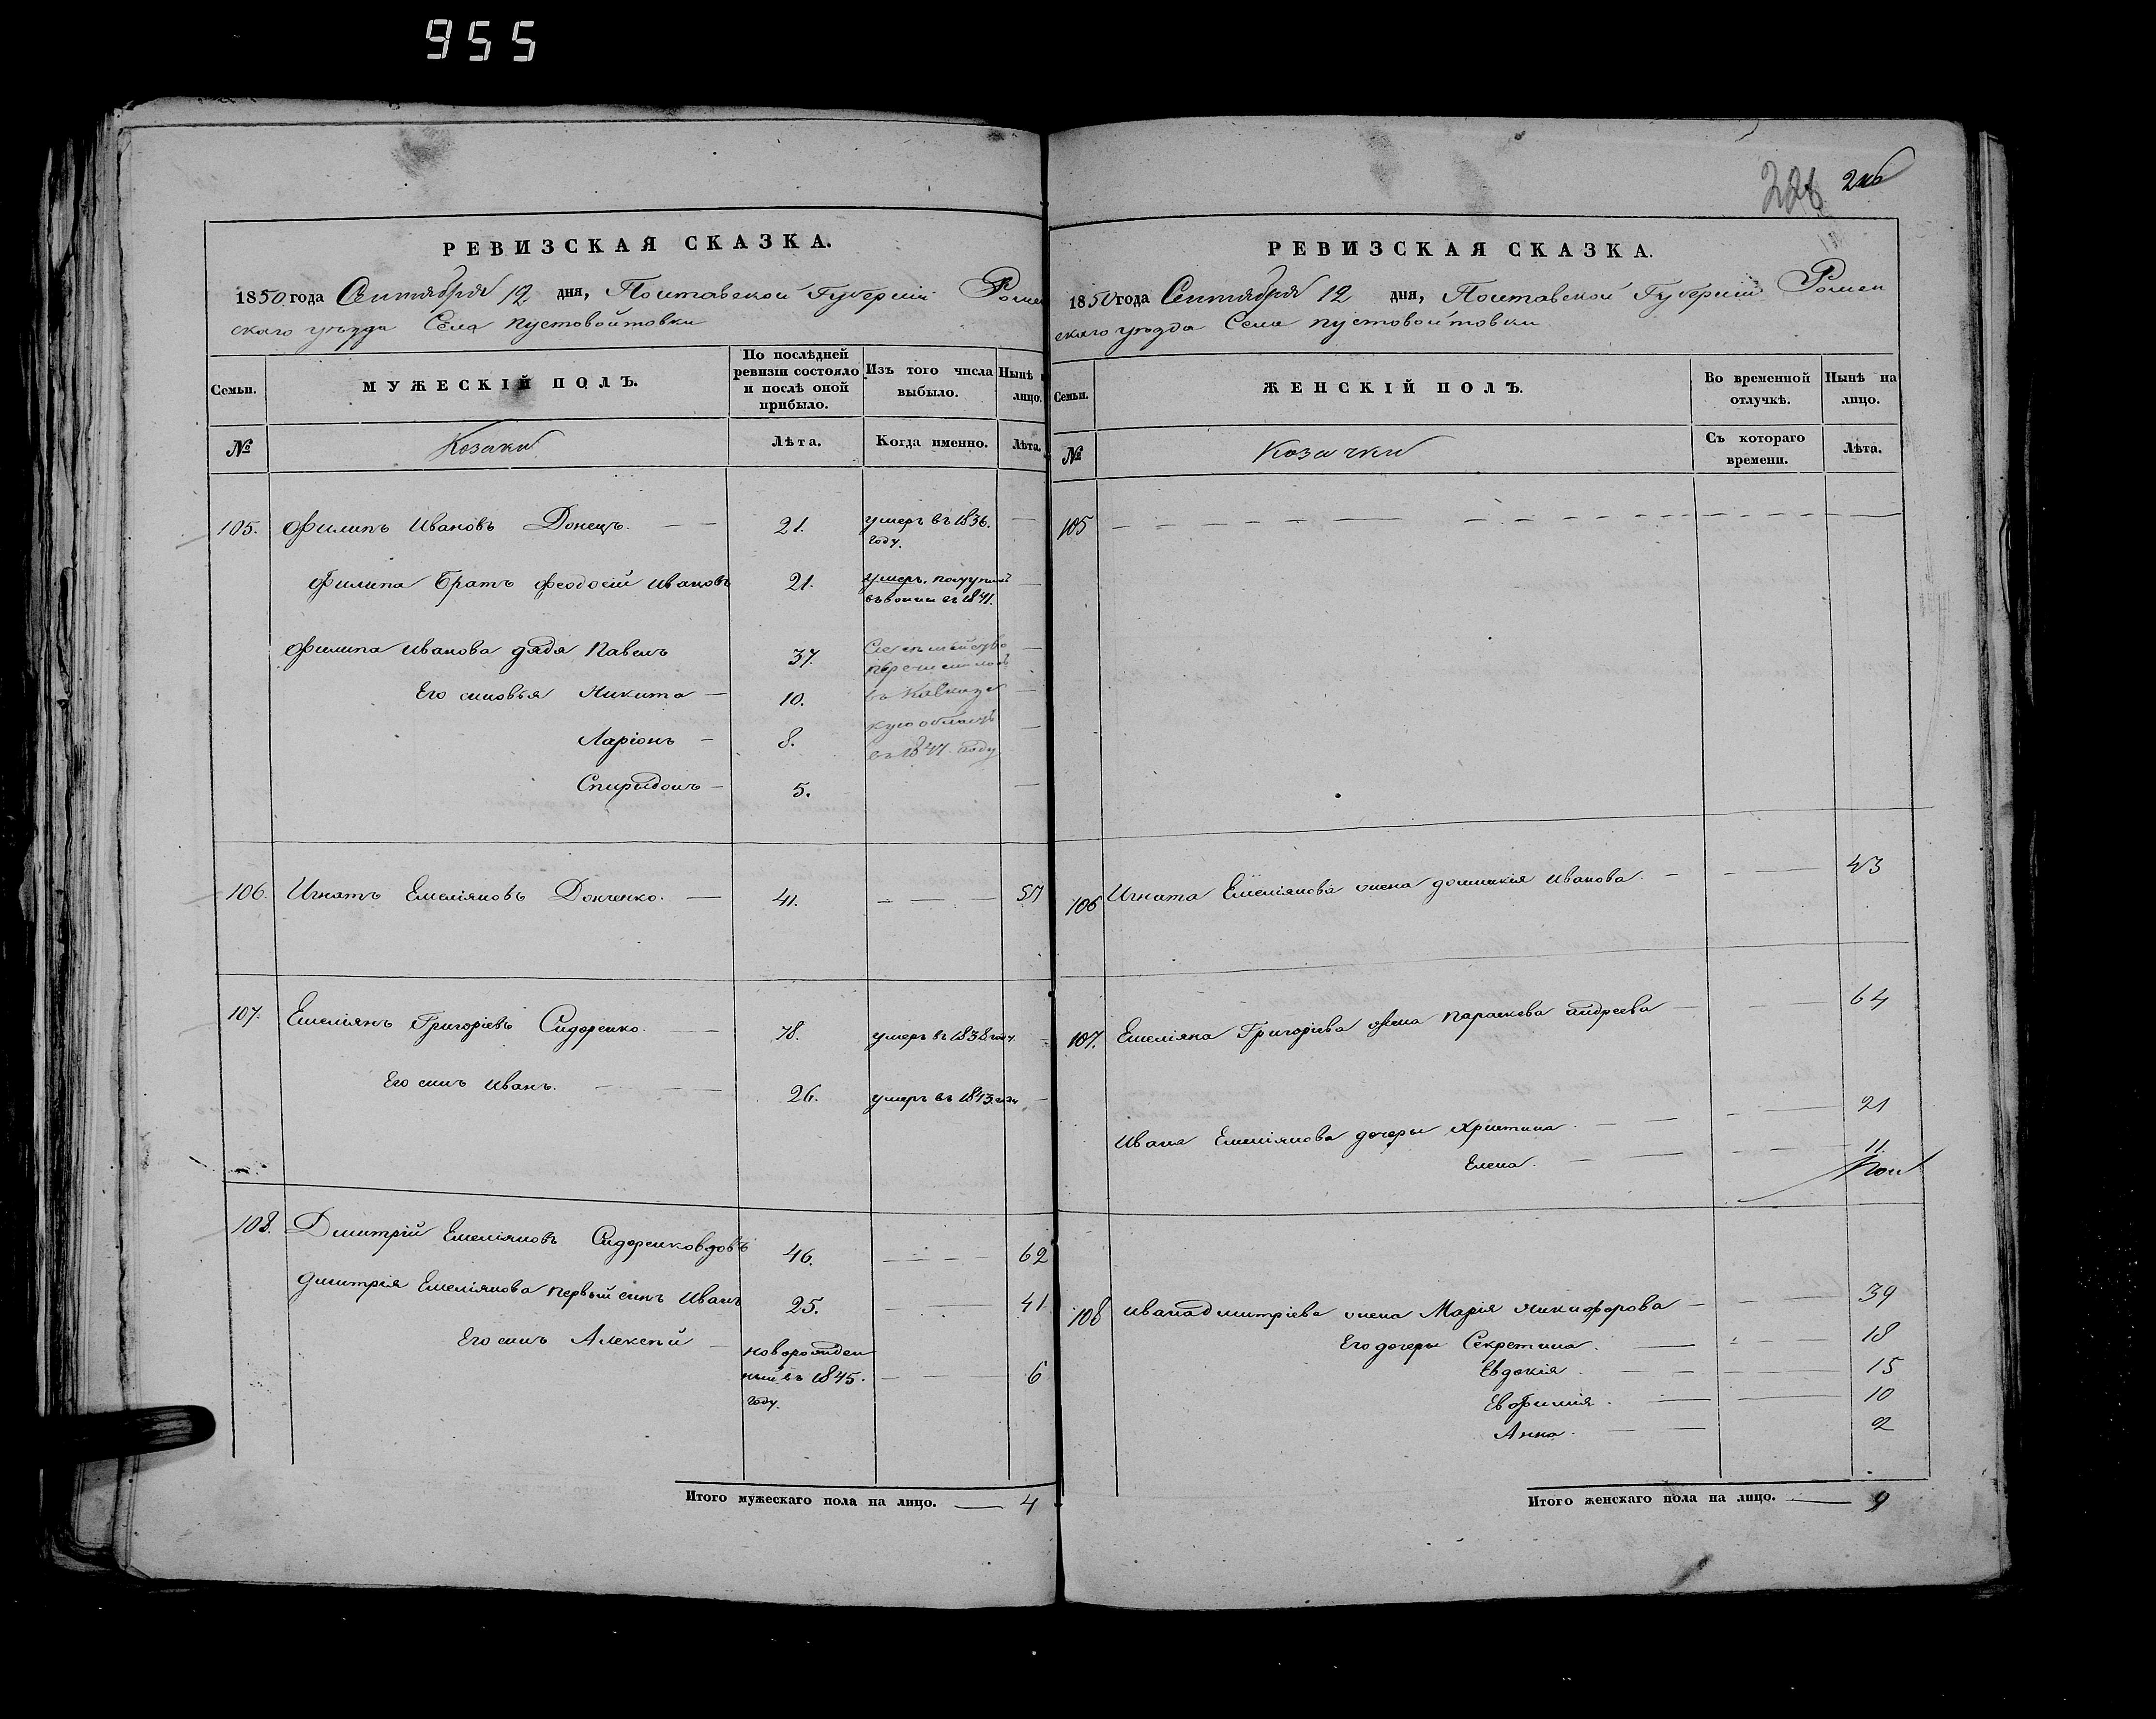 955
РЕВИЗСКАЯ СКАЗКА.
1850 года Сентября 12 дня, Полтавской Губерніи Ромен
скаго уѣзда Села Пустовойтовки
Семьи.
МУЖЕСКІЙ ПОЛЪ.
По послѣдней ревизіи состояло и послѣ оной прибыло.
Изъ того числа выбыло.
Нынѣ на лицо.
№
Козаки
Лѣта.
Когда именно.
Лѣта.
105. Филипъ Ивановъ Донецъ. — — 21. умеръ въ 1836. году. —
Филипа Братъ Феодосій Ивановъ 21. умеръ. въ 1841. —
Филипа Иванова дядя Павелъ 37. —
Его сыновья Никита — 10. —
Ларіонъ — 8. въ 1847. году —
Спиридонъ — 5. —
106. Игнатъ Емеліяновъ Донченко. — 41. — — — 57
107. Емеліянъ Григоріевъ Сидоренко. — — 78. умеръ въ 1838 году. —
Его сынъ Иванъ. — — — 26. умеръ въ 1843. году —
108. Дмитрій Емеліяновъ Сидоренко вдовъ 46. — — — 62
Дмитрія Емеліянова первый сынъ Иванъ 25. — — 41
Его сынъ Алексѣй — новорожден
ный въ 1845. — — 6
году.
Итого мужескаго пола на лицо. — 4
226
РЕВИЗСКАЯ СКАЗКА.
1850 года Сентября 12 дня, Полтавской Губерніи Ромен
скаго уѣзда Села Пустовойтовки
Семьи.
ЖЕНСКІЙ ПОЛЪ.
Во временной отлучкѣ.
Нынѣ на лицо.
№
Козачки
Съ котораго времени.
Лѣта.
105 — — — — — —
106 Игната Емеліянова жена Домникія Иванова. — — — 43
107. Емеліяна Григоріева жена Параскева Андреева — — — 64
Ивана Емеліянова дочери Христина. — — — — 21
Елена. — — — — 11.
108 Ивана Дмитріева жена Марія Никифорова — — — 39
Его дочери Секретина. — — — 18
Евдокія. — — — — 15
Евфимія. — — — 10
Анна. — — 2
Итого женскаго пола на лицо. — 9